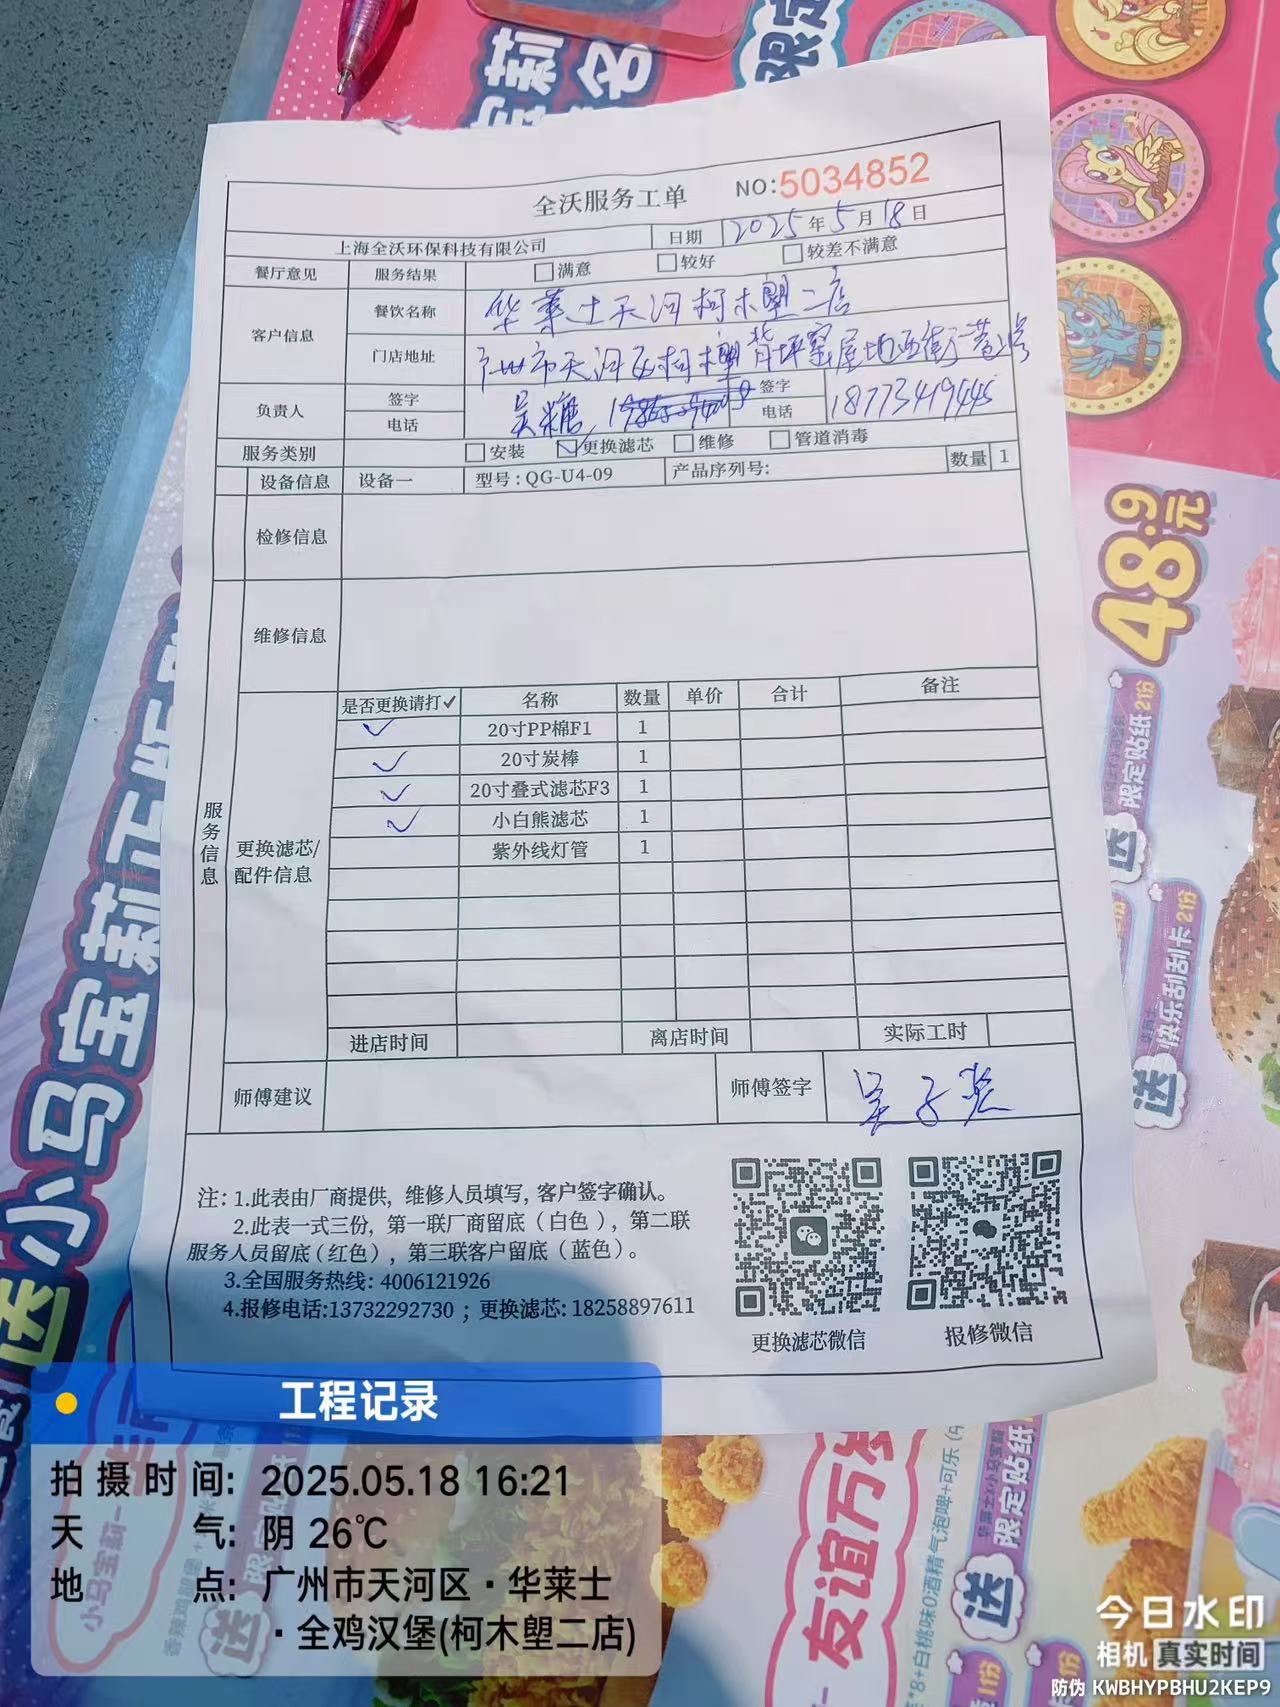 全沃服务工单 NO:5034852
上海全沃环保科技有限公司 日期 2025年5月18日
餐厅意见 服务结果 □满意 □较好 □较差不满意
客户信息 餐饮名称 华莱士天河柯木塱二店
门店地址 广州市天河区柯木塱背坪窑屋地西街一巷2号
负责人 签字 吴 签字
电话 电话 18773419445
服务类别 □安装 ☑更换滤芯 □维修 □管道消毒
设备信息 设备一 型号:QG-U4-09 产品序列号: 数量 1
检修信息
维修信息
服务信息
更换滤芯/配件信息
是否更换请打✓ 名称 数量 单价 合计 备注
✓ 20寸PP棉F1 1
✓ 20寸炭棒 1
✓ 20寸叠式滤芯F3 1
✓ 小白熊滤芯 1
紫外线灯管 1
进店时间 离店时间 实际工时
师傅建议 师傅签字 吴子
注: 1.此表由厂商提供，维修人员填写, 客户签字确认。
2.此表一式三份，第一联厂商留底（白色），第二联
服务人员留底（红色），第三联客户留底（蓝色）。
3.全国服务热线: 4006121926
4.报修电话:13732292730 ; 更换滤芯: 18258897611
更换滤芯微信 报修微信
48.9元
限定贴纸2份
送
快乐刮刮卡2份
送
送小马宝莉正版
友谊万岁
送
限定贴纸
工程记录
拍摄时间: 2025.05.18 16:21
天气: 阴 26℃
地点: 广州市天河区·华莱士
·全鸡汉堡(柯木塱二店)
今日水印
相机 真实时间
防伪 KWBHYPBHU2KEP9